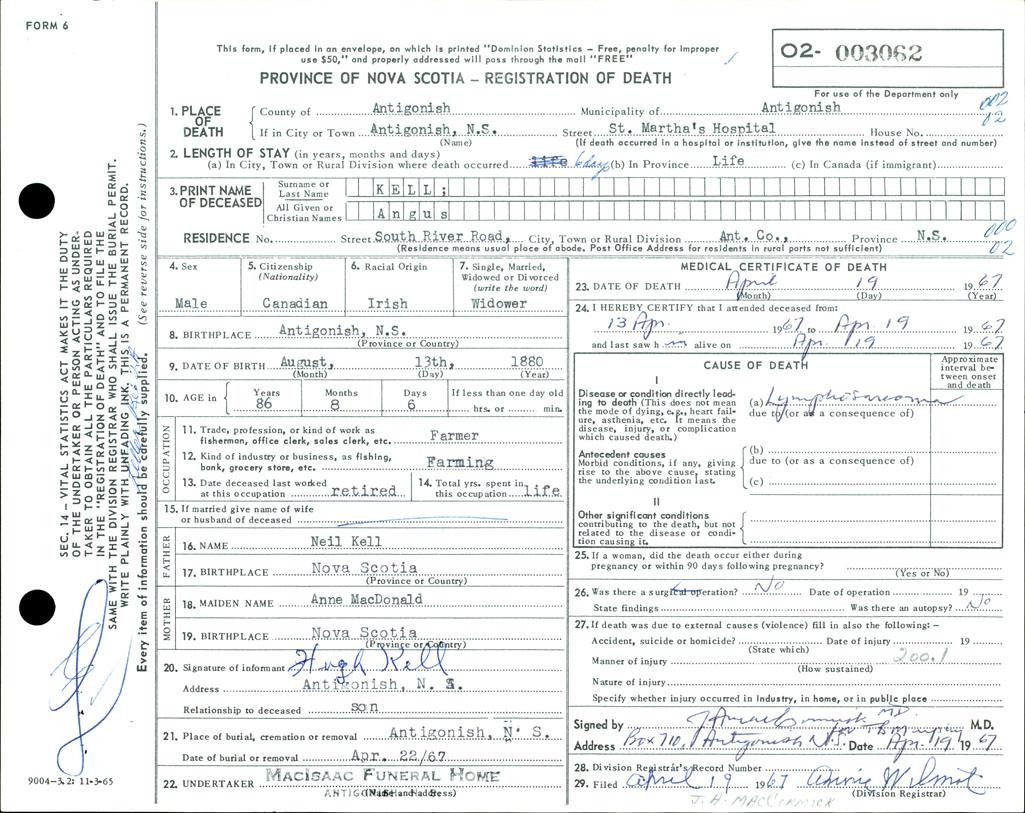 FORM 6
This form, if placed in an envelope, on which is printed "Dominion Statistics – Free, penalty for improper
use $50," and properly addressed will pass through the mail "FREE"
PROVINCE OF NOVA SCOTIA – REGISTRATION OF DEATH
02- 003062
For use of the Department only
1. PLACE OF DEATH
County of Antigonish Municipality of Antigonish 002
02
If in City or Town Antigonish, N.S. Street St. Martha's Hospital House No.
(Name) (If death occurred in a hospital or institution, give the name instead of street and number)
2. LENGTH OF STAY (in years, months and days)
(a) In City, Town or Rural Division where death occurred life 6 days (b) In Province Life (c) In Canada (if immigrant)
3. PRINT NAME OF DECEASED
Surname or Last Name KELL;
All Given or Christian Names Angus
RESIDENCE No. Street South River Road, City, Town or Rural Division Ant. Co., Province N.S. 000
02
(Residence means usual place of abode. Post Office Address for residents in rural parts not sufficient)
4. Sex
Male
5. Citizenship
(Nationality)
Canadian
6. Racial Origin
Irish
7. Single, Married,
Widowed or Divorced
(write the word)
Widower
8. BIRTHPLACE Antigonish, N.S.
(Province or Country)
9. DATE OF BIRTH August, 13th, 1880
(Month) (Day) (Year)
10. AGE in Years 86 Months 8 Days 6 If less than one day old
hrs. or min.
OCCUPATION
11. Trade, profession, or kind of work as
fisherman, office clerk, sales clerk, etc. Farmer
12. Kind of industry or business, as fishing,
bank, grocery store, etc. Farming
13. Date deceased last worked
at this occupation retired
14. Total yrs. spent in
this occupation life
15. If married give name of wife
or husband of deceased
FATHER
16. NAME Neil Kell
17. BIRTHPLACE Nova Scotia
(Province or Country)
MOTHER
18. MAIDEN NAME Anne MacDonald
19. BIRTHPLACE Nova Scotia
(Province or Country)
20. Signature of informant Hugh Kell
Address Antigonish, N. S.
Relationship to deceased son
21. Place of burial, cremation or removal Antigonish, N. S.
Date of burial or removal Apr. 22/67
22. UNDERTAKER MacIsaac Funeral Home
(Name and Address)
MEDICAL CERTIFICATE OF DEATH
23. DATE OF DEATH April 19 1967
(Month) (Day) (Year)
24. I HEREBY CERTIFY that I attended deceased from:
13 Apr. 1967 to Apr 19 1967
and last saw h im alive on Apr. 19 1967
CAUSE OF DEATH
Approximate interval between onset and death
I
Disease or condition directly leading
to death (This does not mean
the mode of dying, e.g., heart failure,
asthenia, etc. It means the
disease, injury, or complication
which caused death.)
(a) Lymphosarcoma
due to (or as a consequence of)
Antecedent causes
Morbid conditions, if any, giving
rise to the above cause, stating
the underlying condition last.
(b)
due to (or as a consequence of)
(c)
II
Other significant conditions
contributing to the death, but not
related to the disease or condition
causing it.
25. If a woman, did the death occur either during
pregnancy or within 90 days following pregnancy?
(Yes or No)
26. Was there a surgical operation? No Date of operation 19
State findings Was there an autopsy? No
27. If death was due to external causes (violence) fill in also the following: –
Accident, suicide or homicide? Date of injury 19
(State which) 200.1
Manner of injury
(How sustained)
Nature of injury
Specify whether injury occurred in Industry, in home, or in public place
Signed by M.D.
Address Box 710, Antigonish N.S. Date Apr. 19 1967
28. Division Registrar's Record Number
29. Filed April 19 1967 Annie Wilmot
(Division Registrar)
J. H. MacCormick
SEC. 14 – VITAL STATISTICS ACT MAKES IT THE DUTY
OF THE UNDERTAKER OR PERSON ACTING AS UNDER-
TAKER TO OBTAIN ALL THE PARTICULARS REQUIRED
IN THE "REGISTRATION OF DEATH" AND TO FILE THE
SAME WITH THE DIVISION REGISTRAR WHO SHALL ISSUE THE BURIAL PERMIT.
WRITE PLAINLY WITH UNFADING INK. THIS IS A PERMANENT RECORD.
Every item of information should be carefully supplied. (See reverse side for instructions.)
9004-3.2: 11-3-65